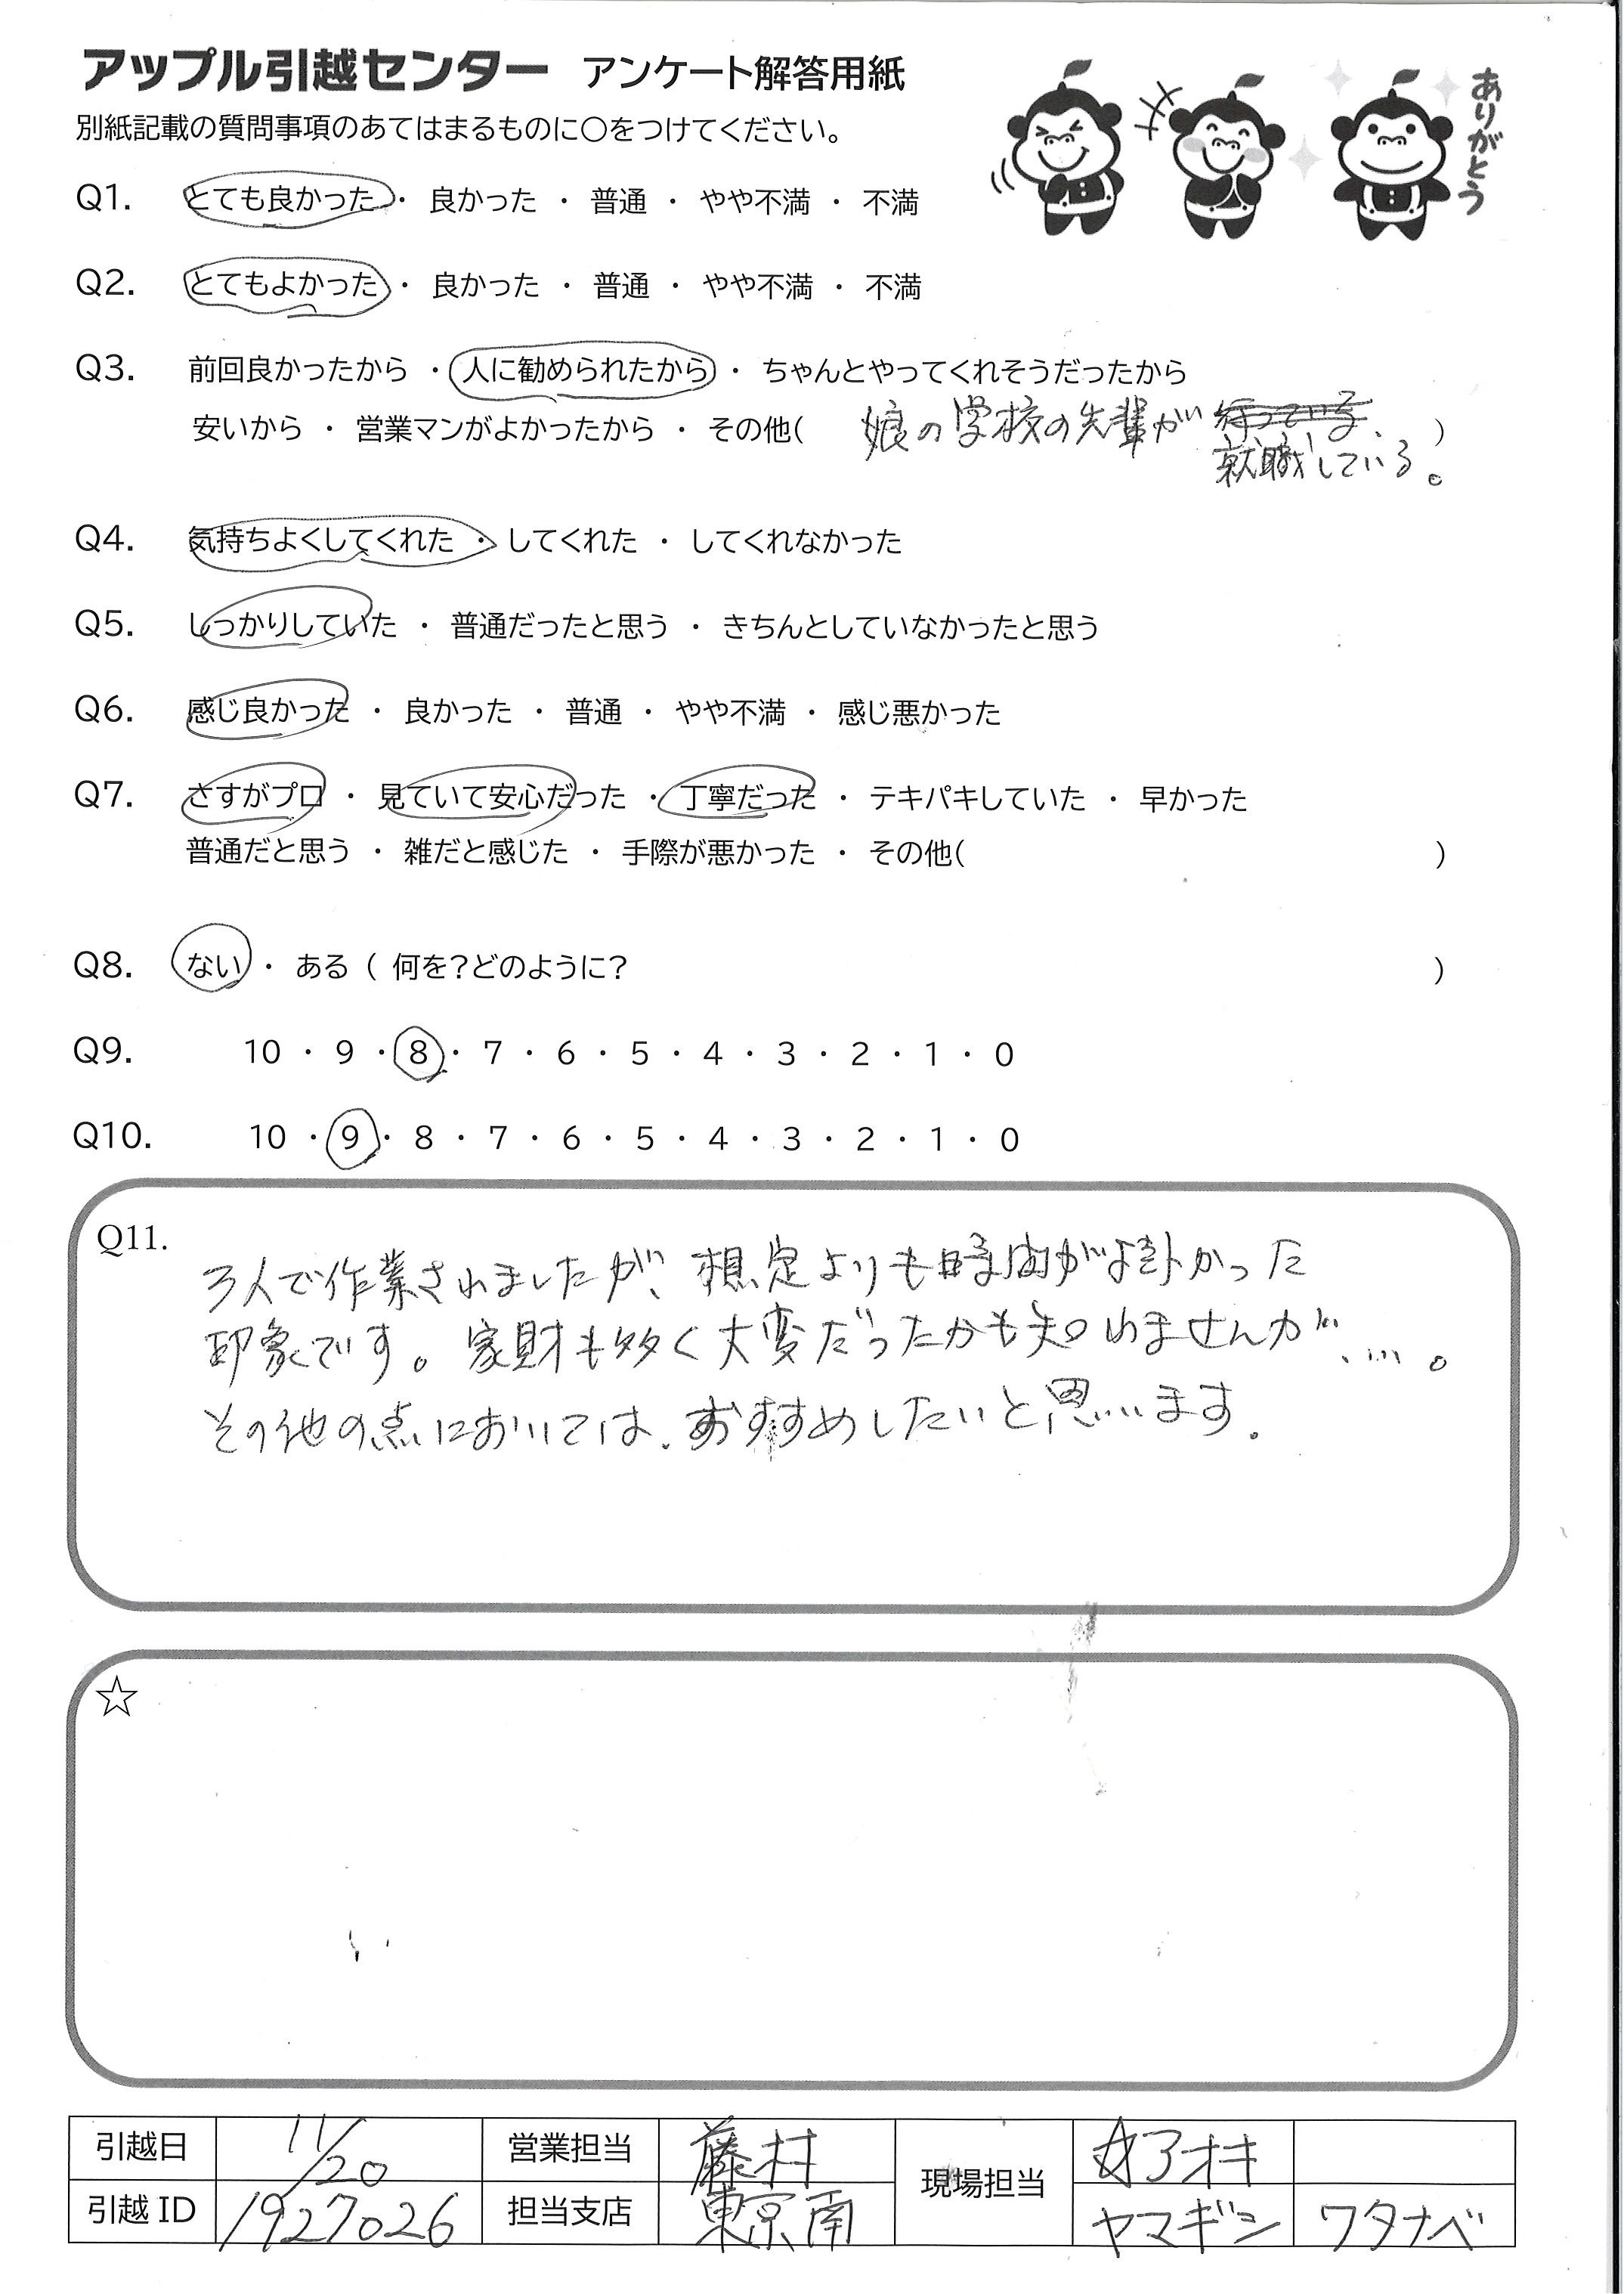 アップル引越センター アンケート解答用紙
ありがとう
別紙記載の質問事項のあてはまるものに○をつけてください。
Q1. とても良かった ・ 良かった ・ 普通 ・ やや不満 ・ 不満
Q2. とてもよかった ・ 良かった ・ 普通 ・ やや不満 ・ 不満
Q3. 前回良かったから ・ 人に勧められたから ・ ちゃんとやってくれそうだったから
安いから ・ 営業マンがよかったから ・ その他( 娘の学校の先輩が )
就職している。
Q4. 気持ちよくしてくれた ・ してくれた ・ してくれなかった
Q5. しっかりしていた ・ 普通だったと思う ・ きちんとしていなかったと思う
Q6. 感じ良かった ・ 良かった ・ 普通 ・ やや不満 ・ 感じ悪かった
Q7. さすがプロ ・ 見ていて安心だった ・ 丁寧だった ・ テキパキしていた ・ 早かった
普通だと思う ・ 雑だと感じた ・ 手際が悪かった ・ その他( )
Q8. ない ・ ある ( 何を?どのように? )
Q9. 10 ・ 9 ・ 8 ・ 7 ・ 6 ・ 5 ・ 4 ・ 3 ・ 2 ・ 1 ・ 0
Q10. 10 ・ 9 ・ 8 ・ 7 ・ 6 ・ 5 ・ 4 ・ 3 ・ 2 ・ 1 ・ 0
Q11.
3人で作業されましたが、想定よりも時間が掛かった
印象です。家財も多く大変だったかも知れませんが、…。
その他の点においては、おすすめしたいと思います。
☆
引越日 11/20 営業担当 藤村 現場担当 ☆アオキ
引越 ID 1927026 担当支店 東京南 ヤマギシ ワタナベ